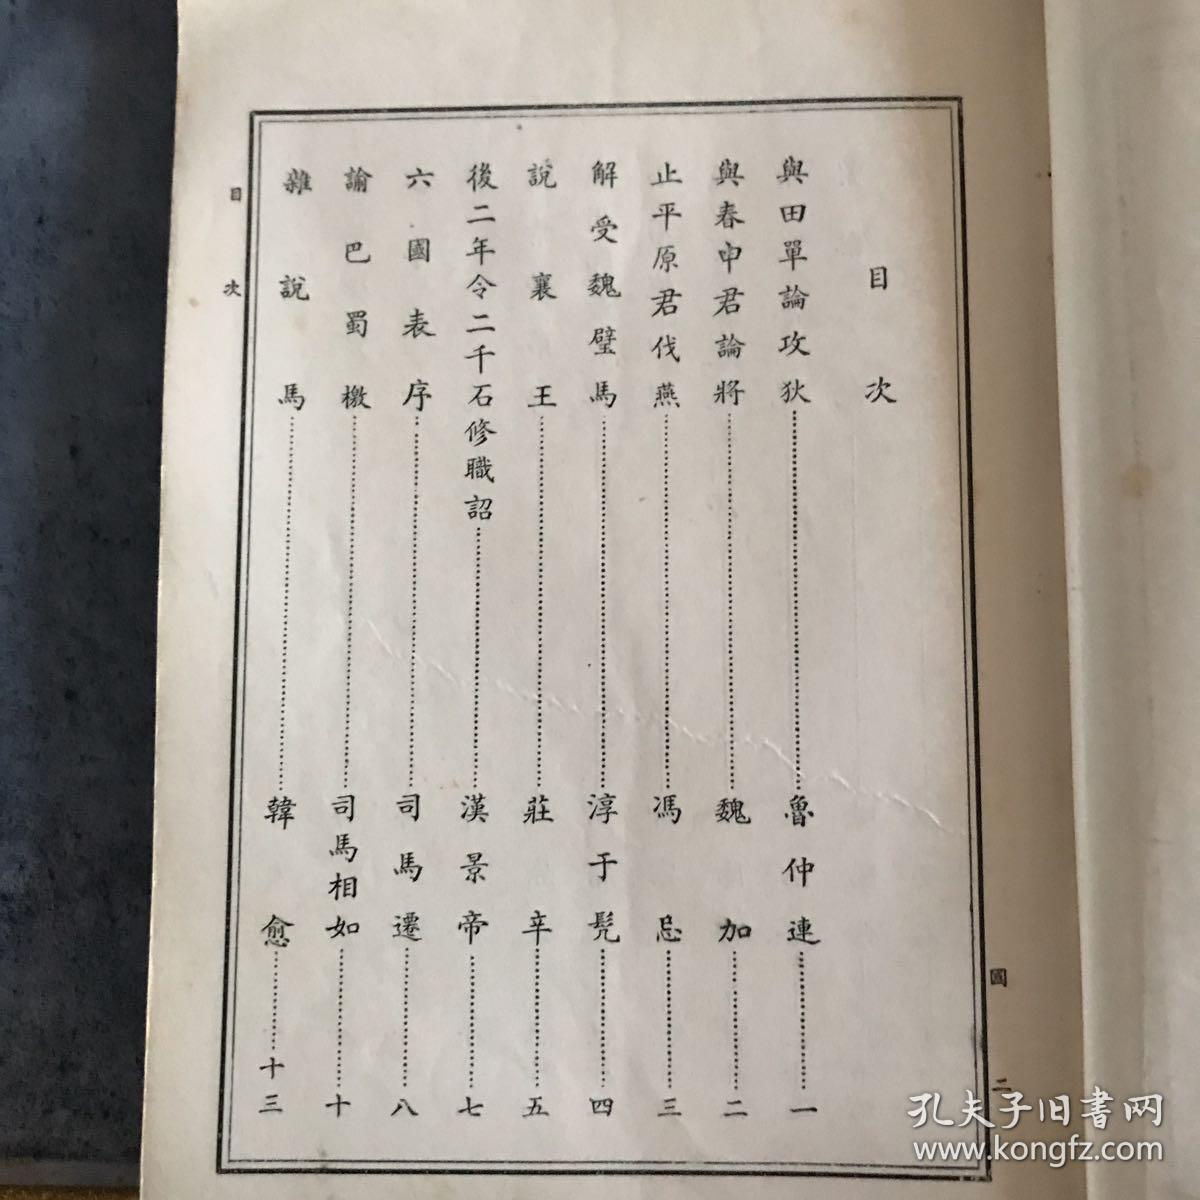 目次
與田單論攻狄⋯⋯魯仲連⋯⋯一
與春申君論將⋯⋯魏加⋯⋯二
止平原君伐燕⋯⋯馮忌⋯⋯三
解受魏璧馬⋯⋯淳于髡⋯⋯四
說襄王⋯⋯莊辛⋯⋯五
後二年令二千石修職詔⋯⋯漢景帝⋯⋯七
六國表序⋯⋯司馬遷⋯⋯八
諭巴蜀檄⋯⋯司馬相如⋯⋯十
雜說馬⋯⋯韓愈⋯⋯十三
目次
國二
孔夫子旧書网
www.kongfz.com